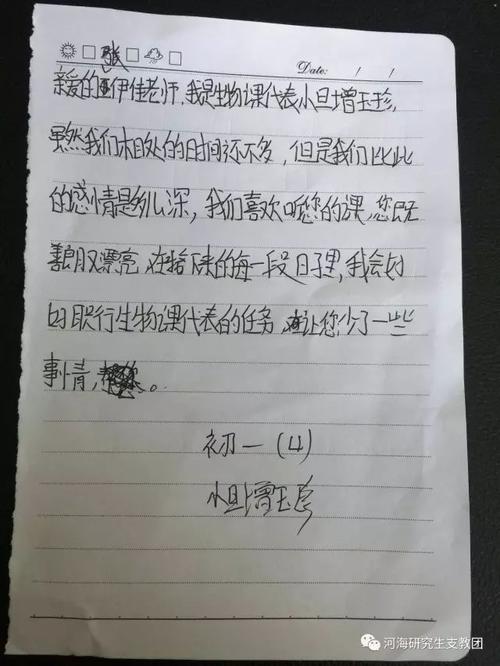 Date: / /
张
亲爱的伊佳老师,我是生物课代表小旦增玉珍,
虽然我们相处的时间还不多,但是我们比此
的感情是多么深,我们喜欢听您的课,您既
又漂亮,在接下来的每一段日子里,我会好
好职行生物课代表的任务,让您少了一些
事情,。
初一(4)
小旦增玉珍
河海研究生支教团